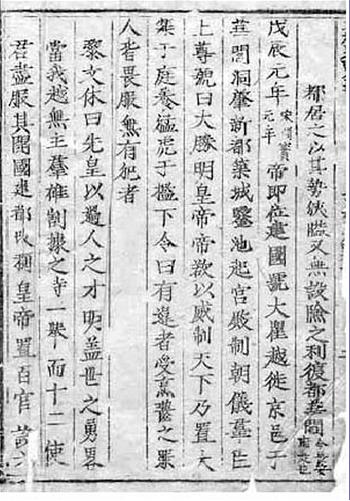 都居之以其勢狹隘又無設險之利復都華閭
戊辰元年 宋開寶元年 帝即位建國號大瞿越徙京邑于
華閭洞肇新都築城鑿池起宮殿制朝儀羣臣
上尊號曰大勝明皇帝帝欲以威制天下乃置大
鼎于庭養猛虎于檻下令曰有違者受烹囓之罪
人皆畏服無有犯者
黎文休曰先皇以過人之才明蓋世之勇畧
當我越無主羣雄割據之時一舉而十二使
君盡服其開國建都改稱皇帝置百官設六